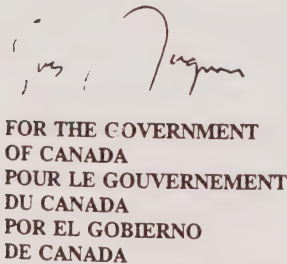 FOR THE GOVERNMENT
OF CANADA
POUR LE GOUVERNEMENT
DU CANADA
POR EL GOBIERNO
DE CANADA